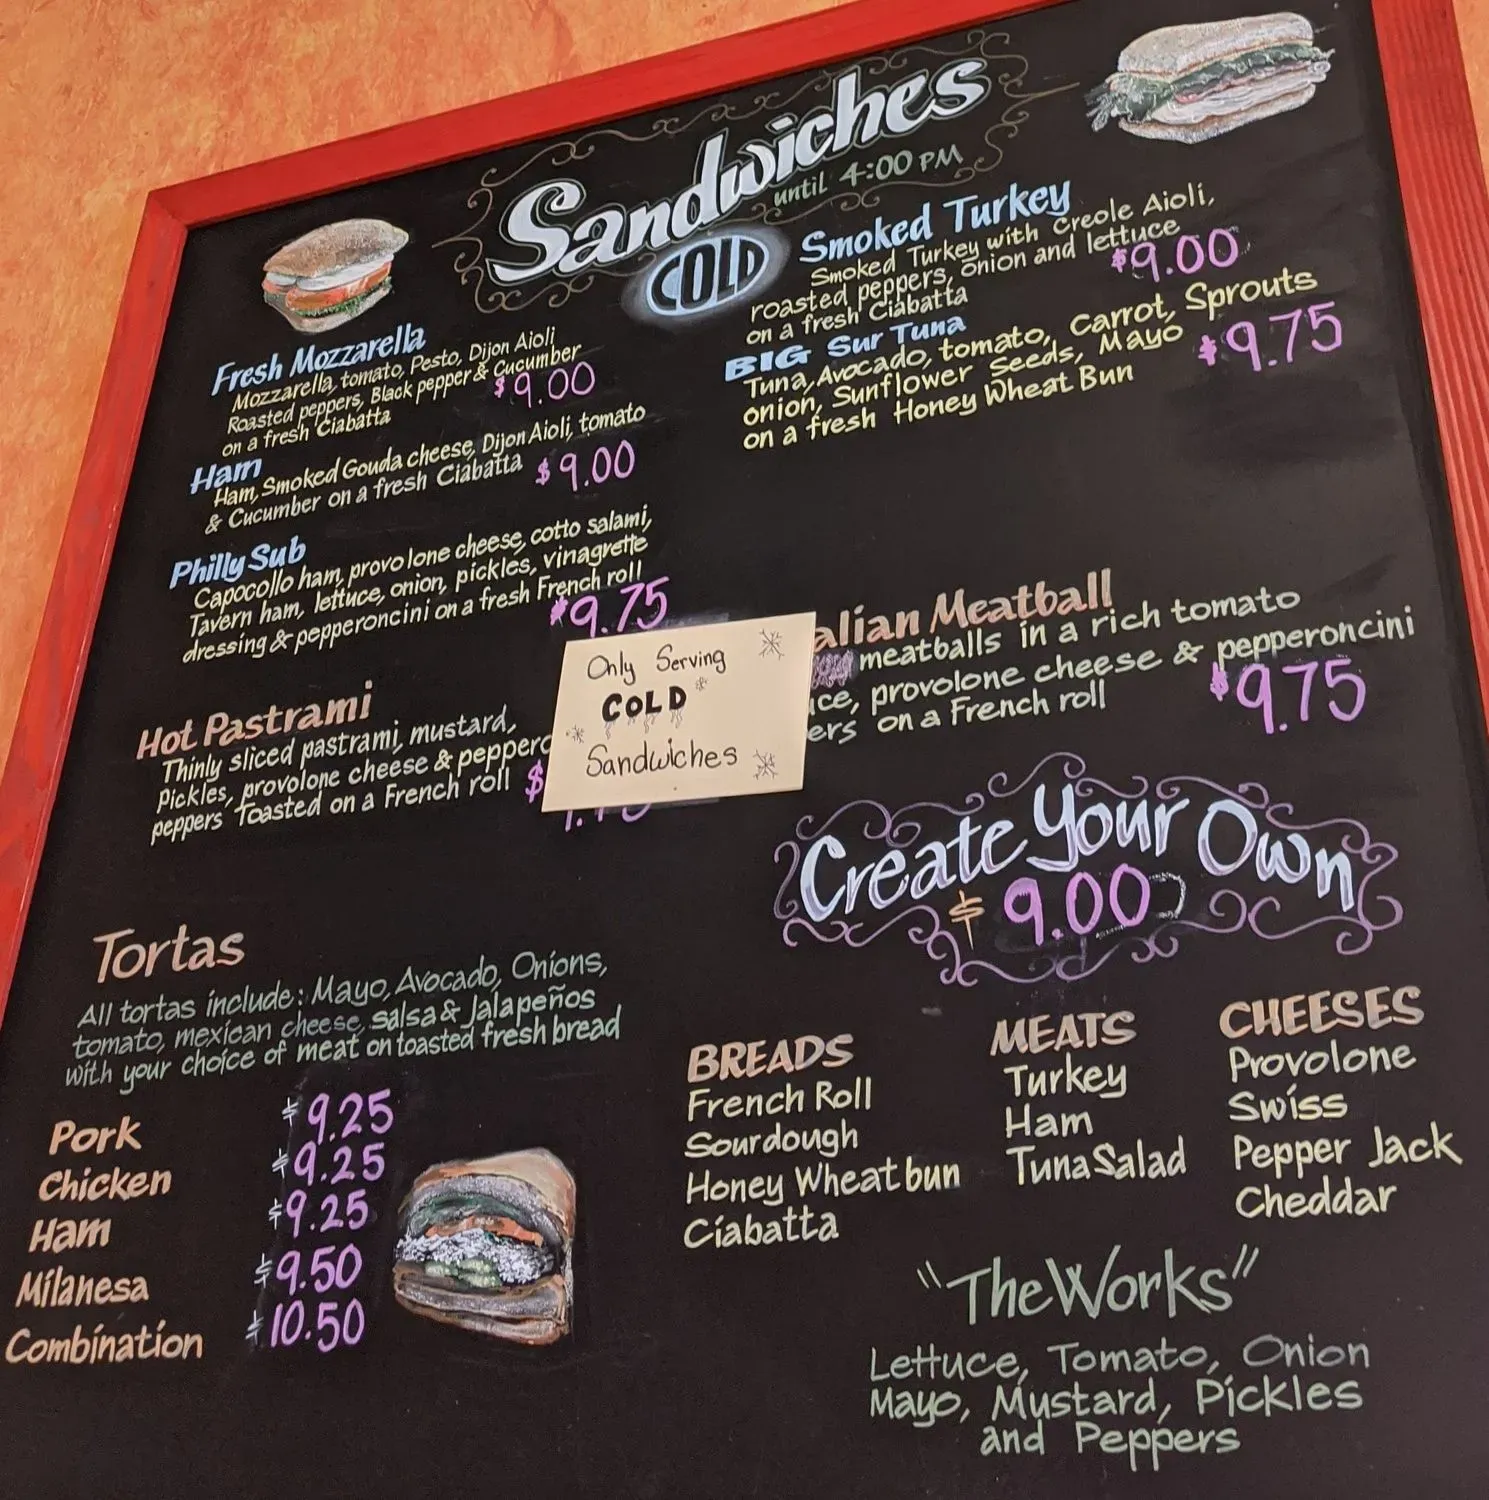 Sandwiches
until 4:00 PM
COLD
Fresh Mozzarella
Mozzarella, tomato, Pesto, Dijon Aioli
Roasted peppers, Black pepper & Cucumber
on a fresh Ciabatta
$9.00
Ham
Ham, Smoked Gouda cheese, Dijon Aioli, tomato
& Cucumber on a fresh Ciabatta $9.00
Philly Sub
Capocollo ham, provolone cheese, cotto salami,
Tavern ham, lettuce, onion, pickles, vinagrette
dressing & pepperoncini on a fresh French roll
$9.75
Smoked Turkey
Smoked Turkey with Creole Aioli,
roasted peppers, onion and lettuce
on a fresh Ciabatta
$9.00
BIG Sur Tuna
Tuna, Avocado, tomato, Carrot, Sprouts
onion, Sunflower Seeds, Mayo
on a fresh Honey Wheat Bun
$9.75
Only Serving
COLD
Sandwiches
Hot Pastrami
Thinly sliced pastrami, mustard,
Pickles, provolone cheese &
peppers Toasted on a French roll $
alian Meatball
meatballs in a rich tomato
ce, provolone cheese & pepperoncini
ers on a French roll
$9.75
Tortas
All tortas include: Mayo, Avocado, Onions,
tomato, mexican cheese, salsa & Jalapeños
with your choice of meat on toasted fresh bread
Pork $9.25
Chicken $9.25
Ham $9.25
Milanesa $9.50
Combination $10.50
Create Your Own
$9.00
BREADS
French Roll
Sourdough
Honey Wheat bun
Ciabatta
MEATS
Turkey
Ham
Tuna Salad
CHEESES
Provolone
Swiss
Pepper Jack
Cheddar
"The Works"
Lettuce, Tomato, Onion
Mayo, Mustard, Pickles
and Peppers